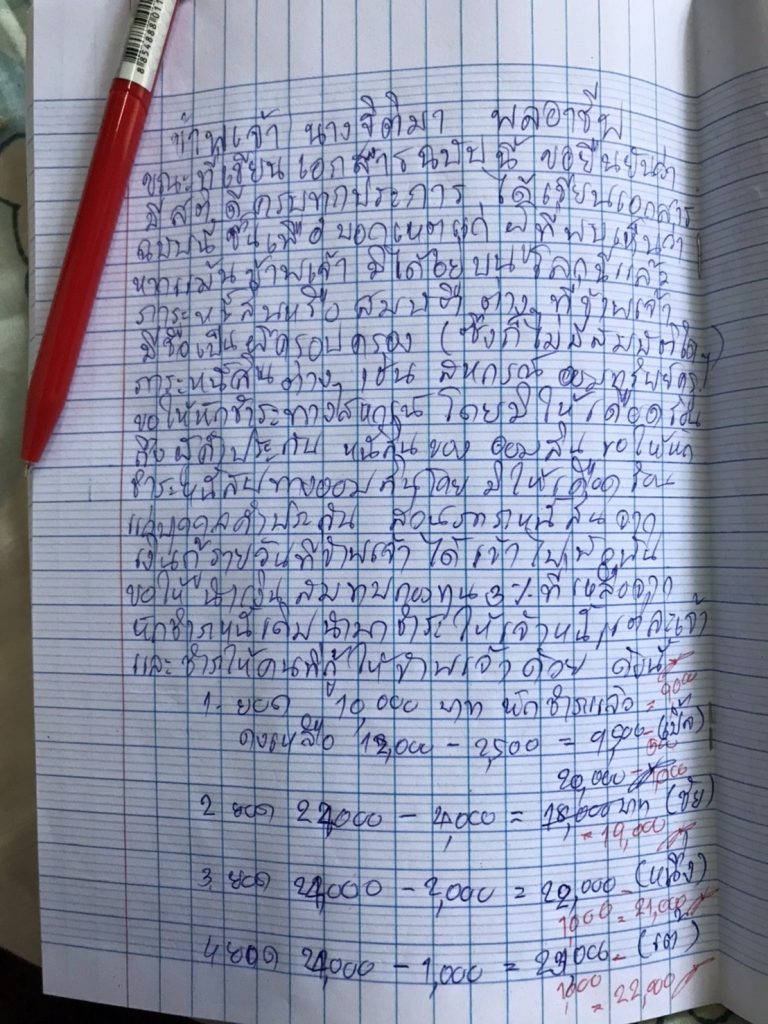 885488801
ข้าพเจ้า นางจิติมา พลอาชีพ
ขณะที่เขียนเอกสารฉบับนี้ ขอยืนยันว่า
มีสติดีครบทุกประการ ได้เขียนเอกสาร
ฉบับนี้ขึ้นเพื่อบอกเหตุแก่ ผู้ที่พบเห็นว่า
หากแม้นข้าพเจ้า มิได้อยู่บนโลกนี้แล้ว
ภาระหนี้สินหรือ สมบัติ ต่างๆ ที่ข้าพเจ้า
มีชื่อเป็นผู้ครอบครอง (ซึ่งก็ไม่มีสมบัติใดๆ)
ภาระหนี้สินต่างๆ เช่น สหกรณ์ออมทรัพย์ครู
ขอให้หักชำระทางสหกรณ์ โดยมิให้เดือดร้อน
ถึงผู้ค้ำประกัน หนี้สินของ ออมสิน ขอให้หัก
ชำระหนี้สินทางออมสินโดย มิให้เดือดร้อน
แก่บุคคลค้ำประกัน ส่วนภาระหนี้สินจาก
เงินกู้รายวันที่ข้าพเจ้า ได้เข้าไปพัวพัน
ขอให้นำเงินสมทบกองทุน 3% ที่เหลือจาก
หักชำระหนี้เดิมนำมาชำระให้เจ้าหนี้แต่ละเจ้า
และชำระให้คนที่กู้ให้ข้าพเจ้าด้วย ดังนี้
1. ยอด 10,000 บาท หักชำระแล้ว = 9000
คงเหลือ 12,000 - 2,500 = 9,500
20,000 - 1,000
2 ยอด 22,000 - 4,000 = 18,000 บาท (ชัย)
= 19,000
3. ยอด 24,000 - 2,000 = 22,000 - (หนึ่ง)
1000 = 21,000
4 ยอด 24,000 - 1,000 = 23,000 - (เต้)
1000
= 22,000